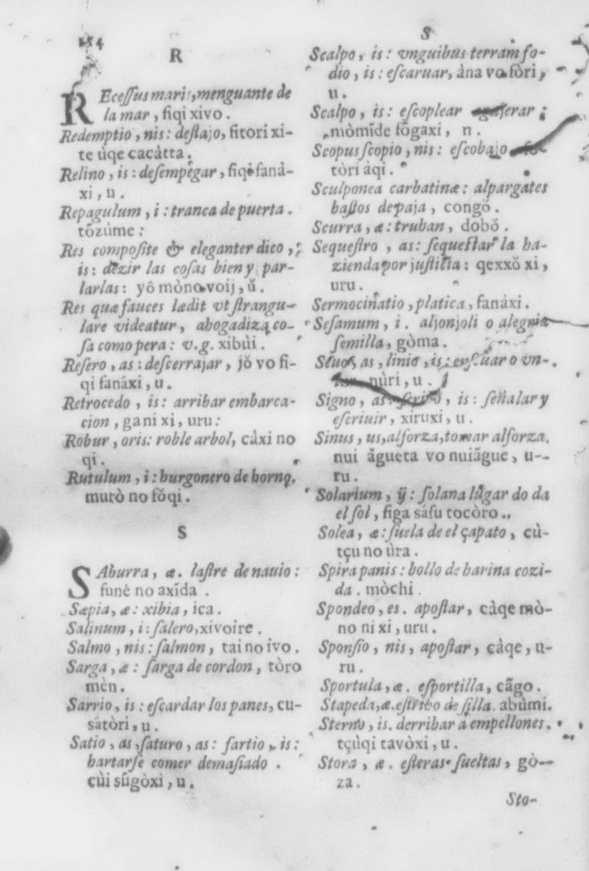 254
R
REcessus maris, menguante de
la mar, fiqi xivo.
Redemptio, nis: destajo, fitori xi-
te uqe cacàtta.
Relino, is: desempegar, fiqi fanà-
xi, u.
Repagulum, i: tranca de puerta.
tōzúme:
Res composite & eleganter dico,
is: dezir las cosas bien y par-
larlas: yô mòno voij, ú.
Res quæ fauces lædit vt strangu-
lare videatur, abogadiza co-
sa como pera: v.g. xibùi.
Resero, as: descerrajar, jŏ vo fi-
qi fanáxi, u.
Retrocedo, is: arribar embarca-
cion, gani xi, uru:
Robur, oris: roble arbol, càxi no
qi.
Rutulum, i: hurgonero de horno.
murò no fŏqi.
S
SAburra, æ. lastre de nauio:
funè no axída.
Sæpia, æ: xibia, ica.
Salinum, i: salero, xivoire.
Salmo, nis: salmon, tai no ivo.
Sarga, æ: sarga de cordon, tòro
mèn.
Sarrio, is: escardar los panes, cu-
satòri, u.
Satio, as, saturo, as: sartio, is:
hartarse comer demasiado.
cùi sŭgòxi, u.
S
Scalpo, is: vnguibus terram fo-
dio, is: escaruar, àna vo fòri,
u.
Scalpo, is: escoplear
mòmíde fŏgaxi, n.
Scopus scopio, nis: escobajo
tòri àqi.
Sculponea carbatinæ: alpargates
bastos de paja, congŏ.
Scurra, æ: truban, dobŏ.
Sequestro, as: sequestrar la ha-
zienda por justitia: qexxŏ xi,
uru.
Sermocinatio, platica, fanáxi.
Sesamum, i. aljonjoli o alegria
semilla, gòma.
as, linio, is: vn-
nùri, u.
Signo, as is: señalar y
escriuir, xiruxi, u.
Sinus, us, alforza, tomar alforza.
nui ăgueta vo nuiăgue, u-
ru.
Solarium, ÿ: solana lugar do da
el sol, figa sàsu tocòro.
Solea, æ: suela de el çapato, cù-
tçu no ùra.
Spira panis: bollo de harina cozi-
da. mòchi.
Spondeo, es. apostar, càqe mò-
no ni xi, uru.
Sponsio, nis, apostar, càqe, u-
ru.
Sportula, æ. esportilla, cãgo.
Stapeda, æ. estribo de silla. abùmi.
Sterno, is. derribar a empellones.
tçùqi tavòxi, u.
Stora, æ. esteras sueltas, gò-
za.
Sto-